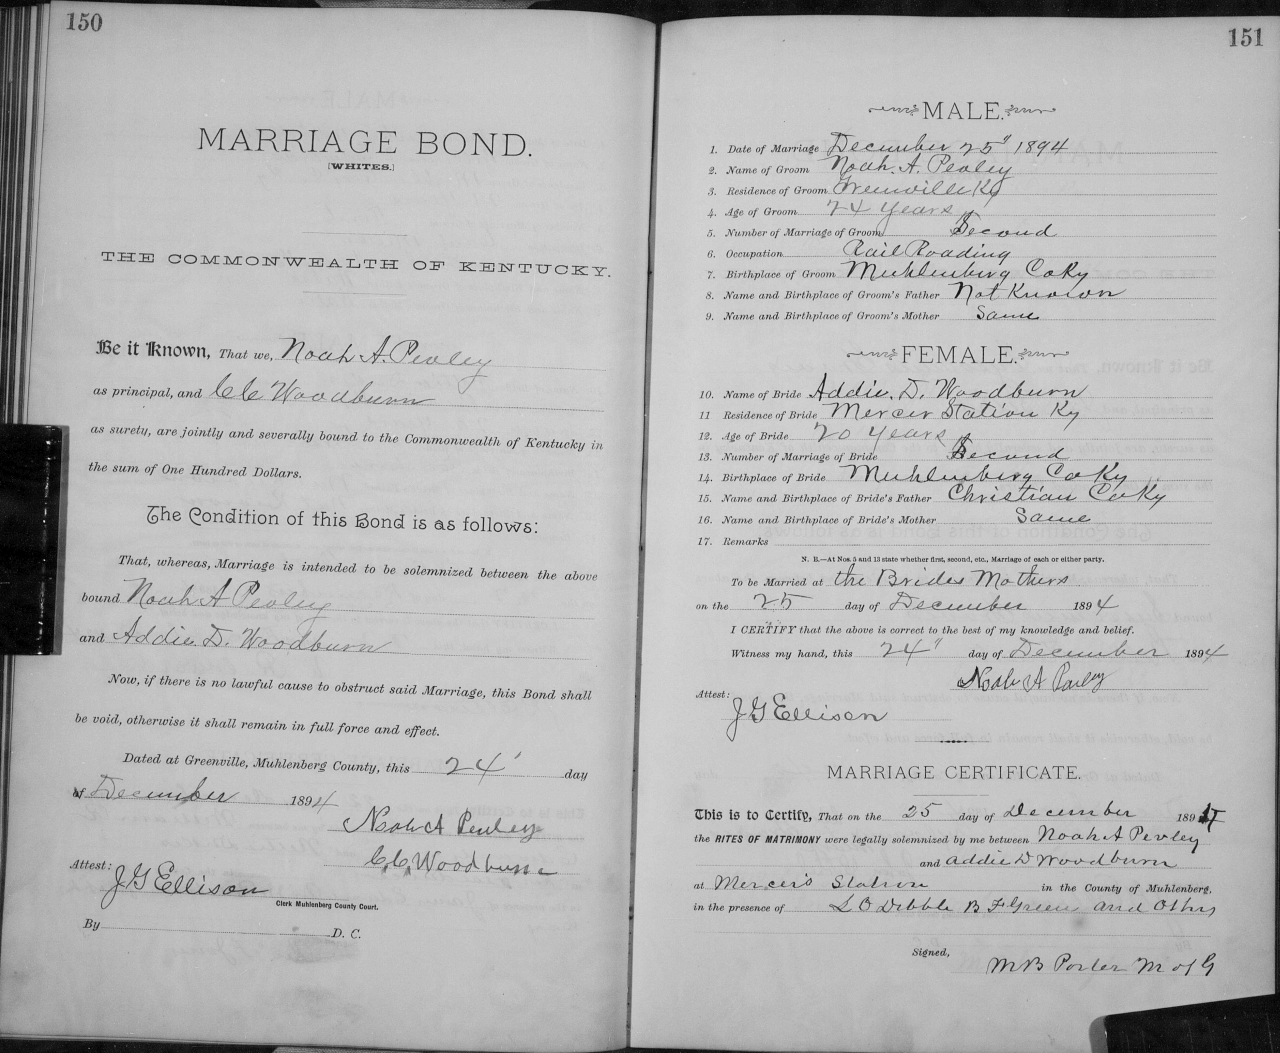 150
MARRIAGE BOND.
[WHITES.]
THE COMMONWEALTH OF KENTUCKY.
Be it Known, That we, Noah A. Pevley
as principal, and C C Woodburn
as surety, are jointly and severally bound to the Commonwealth of Kentucky in
the sum of One Hundred Dollars.
The Condition of this Bond is as follows:
That, whereas, Marriage is intended to be solemnized between the above
bound Noah A Pevley
and Addie. D. Woodburn
Now, if there is no lawful cause to obstruct said Marriage, this Bond shall
be void, otherwise it shall remain in full force and effect.
Dated at Greenville, Muhlenberg County, this 24' day
of December 1894
Noah A Pevley
C. C. Woodburn
Attest: J G Ellison
Clerk Muhlenberg County Court.
By D. C.
151
MALE.
1. Date of Marriage December 25" 1894
2. Name of Groom Noah. A. Pevley
3. Residence of Groom Greenville Ky
4. Age of Groom 24 years
5. Number of Marriage of Groom Second
6. Occupation Rail Roading
7. Birthplace of Groom Muhlenberg Co Ky
8. Name and Birthplace of Groom's Father Not Known
9. Name and Birthplace of Groom's Mother Same
FEMALE.
10. Name of Bride Addie. D. Woodburn
11 Residence of Bride Mercer Station Ky
12. Age of Bride 20 years
13. Number of Marriage of Bride Second
14. Birthplace of Bride Muhlenberg Co Ky
15. Name and Birthplace of Bride's Father Christian Co Ky
16. Name and Birthplace of Bride's Mother Same
17. Remarks
N. B.—At Nos. 5 and 13 state whether first, second, etc., Marriage of each or either party.
To be Married at the Brides Mothers
on the 25 day of December 1894
I CERTIFY that the above is correct to the best of my knowledge and belief.
Witness my hand, this 24" day of December 1894
Noah A Pevley
Attest: J G Ellison
MARRIAGE CERTIFICATE.
This is to Certify, That on the 25 day of December 1894
the RITES OF MATRIMONY were legally solemnized by me between Noah A Pevley
and Addie D Woodburn
at Mercer's Station in the County of Muhlenberg.
in the presence of L O Dibble B F Green and Others
Signed,
M B Porter M of G